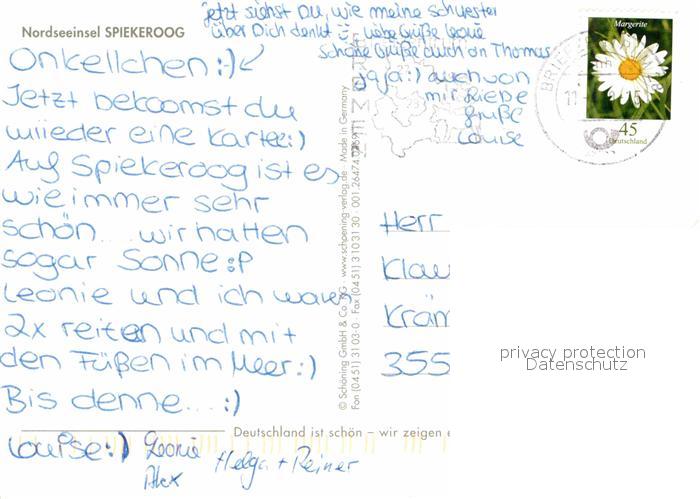 Nordseeinsel SPIEKEROOG
jetzt siehst Du, wie meine Schwester
über Dich denkt :) Liebe Grüße Leonie
Schöne Grüße auch an Thomas
Onkellchen :)
Jetzt bekoomst du
wiieder eine Karte :)
Auf Spiekeroog ist es
wie immer sehr
schön... wir hatten
sogar Sonne :P
Leonie und ich waren
2x reiten und mit
den Füßen im Meer :)
Bis denne... :)
Louise :) Leonie
Alex
Helga + Reiner
jaja :) auch von
mir liebe
Grüße
Louise
Margerite
45
Deutschland
BRIEFZ
11
© Schöning GmbH & Co. KG · www.schoening-verlag.de · Made in Germany
Fon (0451) 3103-0 · Fax (0451) 3103130 · 001.26474.0759
Herr
Klau
Kräm
355
privacy protection
Datenschutz
Deutschland ist schön – wir zeigen e